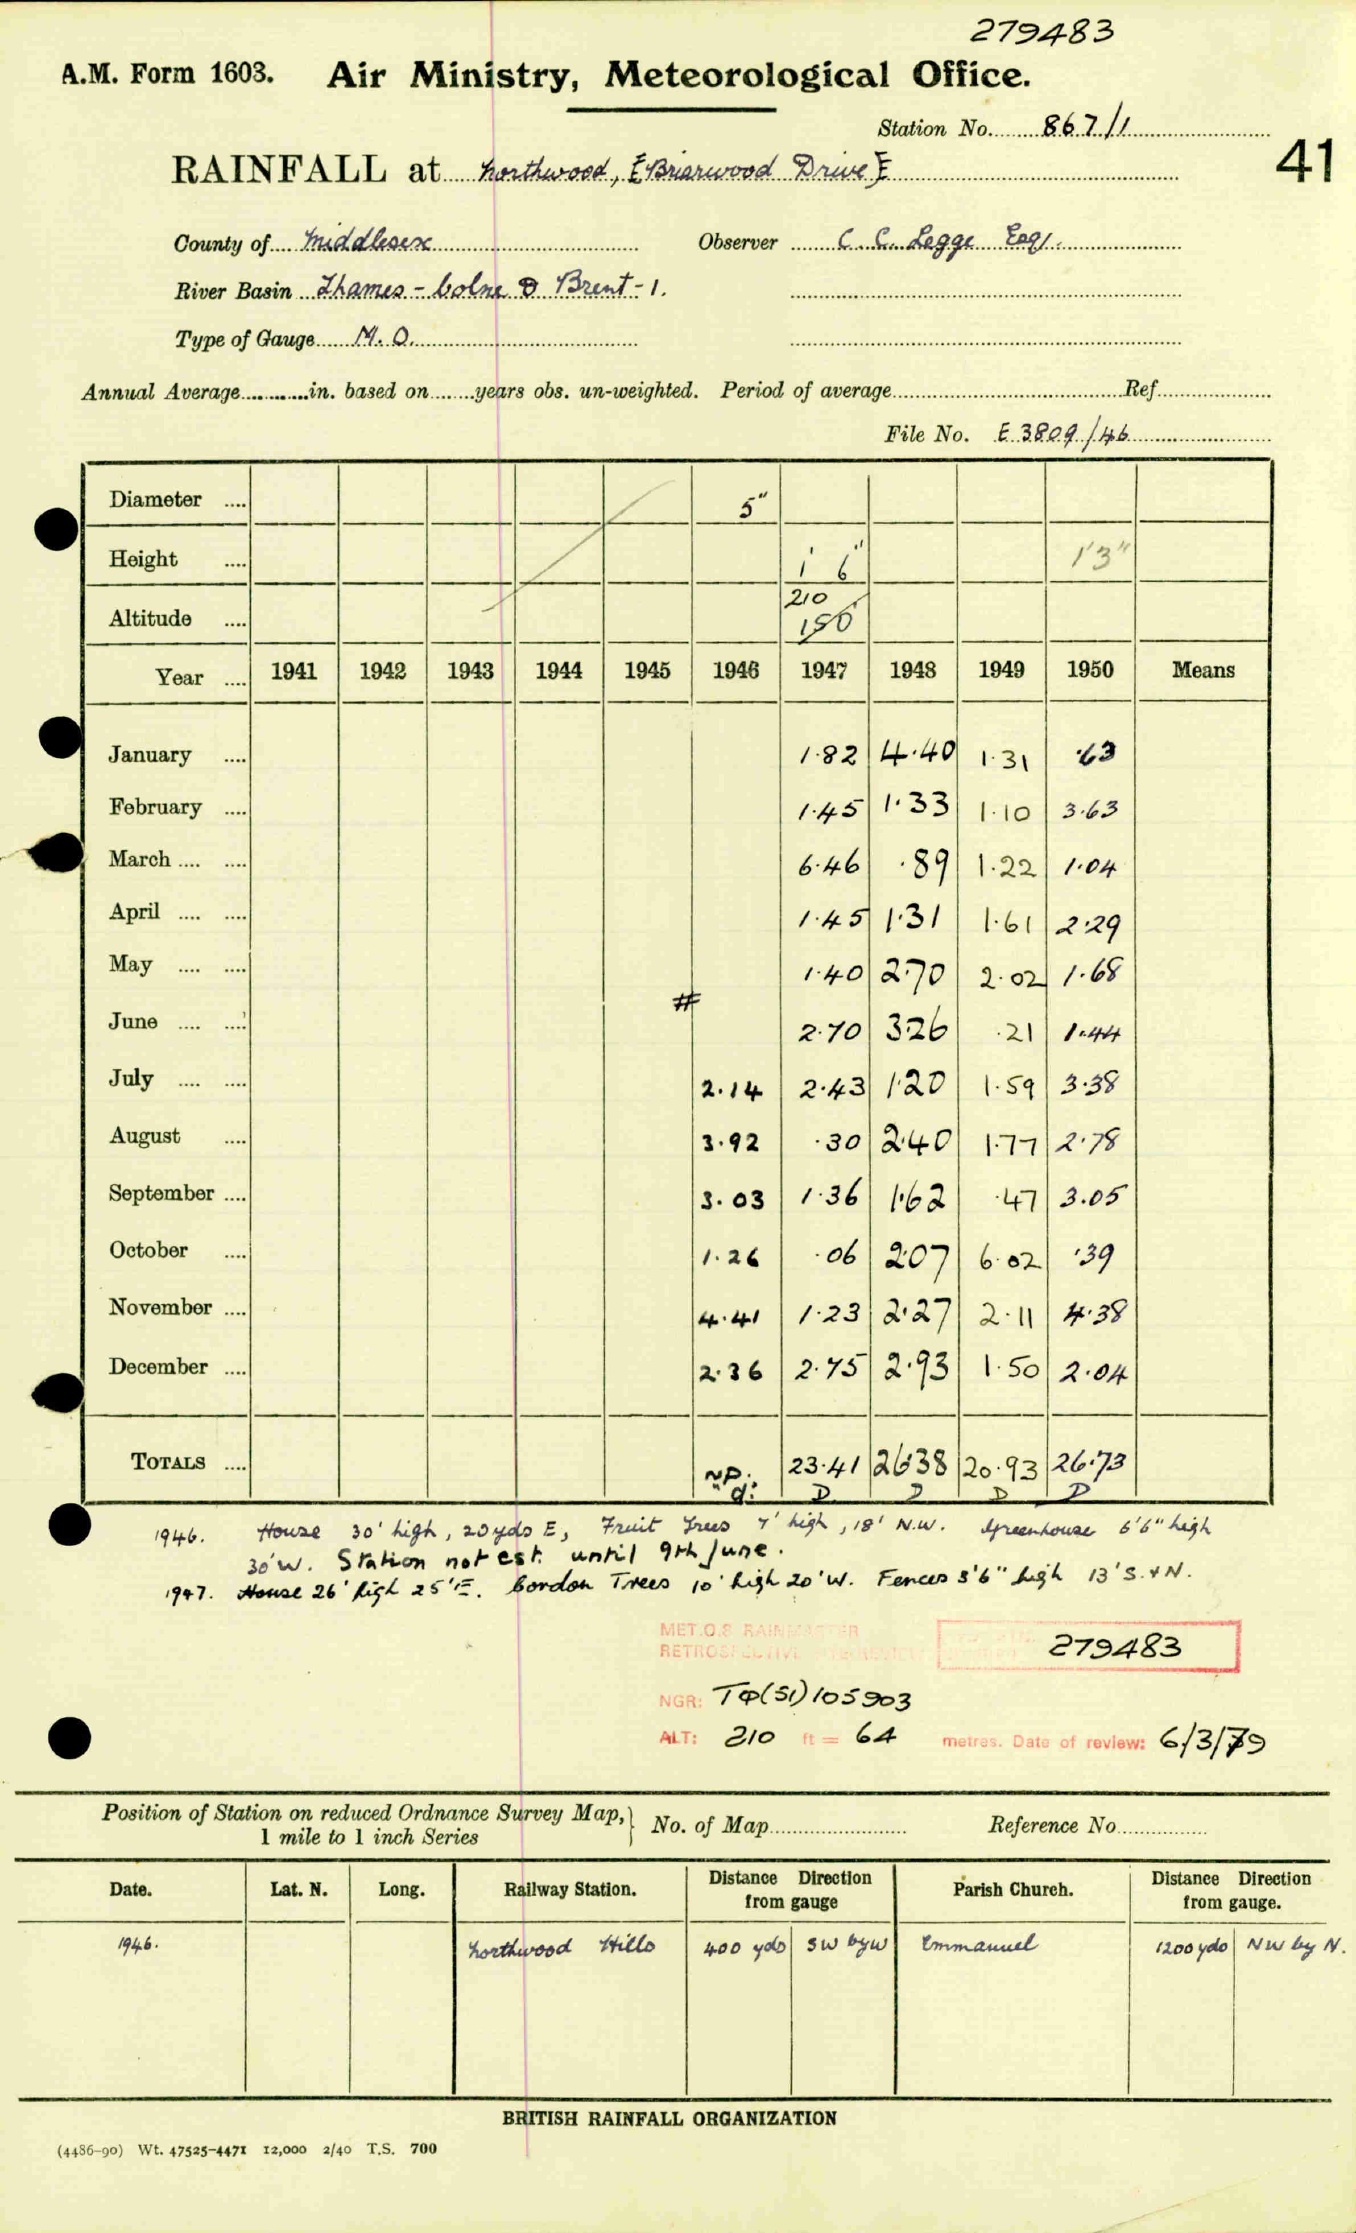 279483
A.M. Form 1603. Air Ministry, Meteorological Office.
Station No. 867/1
41
RAINFALL at Northwood, [Briarwood Drive]
County of Middlesex Observer C. C. Legge Esq.
River Basin Thames - Colne & Brent - 1.
Type of Gauge M.O.
Annual Average............in. based on........years obs. un-weighted. Period of average............ Ref............
File No. E 3809/46
Diameter .... 5"
Height .... 1' 6" 1'3"
Altitude .... 210 150'
Year .... 1941 1942 1943 1944 1945 1946 1947 1948 1949 1950 Means
January .... 1.82 4.40 1.31 .63
February .... 1.45 1.33 1.10 3.63
March .... .... 6.46 .89 1.22 1.04
April .... .... 1.45 1.31 1.61 2.29
May .... .... 1.40 2.70 2.02 1.68
#
June .... .... 2.70 3.26 .21 1.44
July .... .... 2.14 2.43 1.20 1.59 3.38
August .... 3.92 .30 2.40 1.77 2.78
September .... 3.03 1.36 1.62 .47 3.05
October .... 1.26 .06 2.07 6.02 .39
November .... 4.41 1.23 2.27 2.11 4.38
December .... 2.36 2.75 2.93 1.50 2.04
TOTALS .... 23.41 26.38 20.93 26.73
D D D D
1946. House 30' high, 20yds E, Fruit Trees 7' high, 18' N.W. Greenhouse 6'6" high
30'W. Station not est. until 9th June.
1947. House 26' high 25'E. Cordon Trees 10' high 20'W. Fences 5'6" high 13' S. & N.
MET.O.8 RAINMASTER
RETROSPECTIVE 279483
NGR: TQ(51)105903
ALT: 210 ft = 64 metres. Date of review: 6/3/79
Position of Station on reduced Ordnance Survey Map, 1 mile to 1 inch Series } No. of Map............ Reference No............
Date. Lat. N. Long. Railway Station. Distance Direction from gauge Parish Church. Distance Direction from gauge.
1946. Northwood Hills 400 yds SW by W Emmanuel 1200 yds NW by N.
BRITISH RAINFALL ORGANIZATION
(4486-90) Wt. 47525-4471 12,000 2/40 T.S. 700